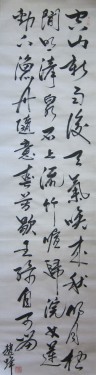 空山新雨後天氣晚来秋明月松
間照清泉石上流竹喧歸浣女蓮
動下漁舟隨意春芳歇王孫自可留